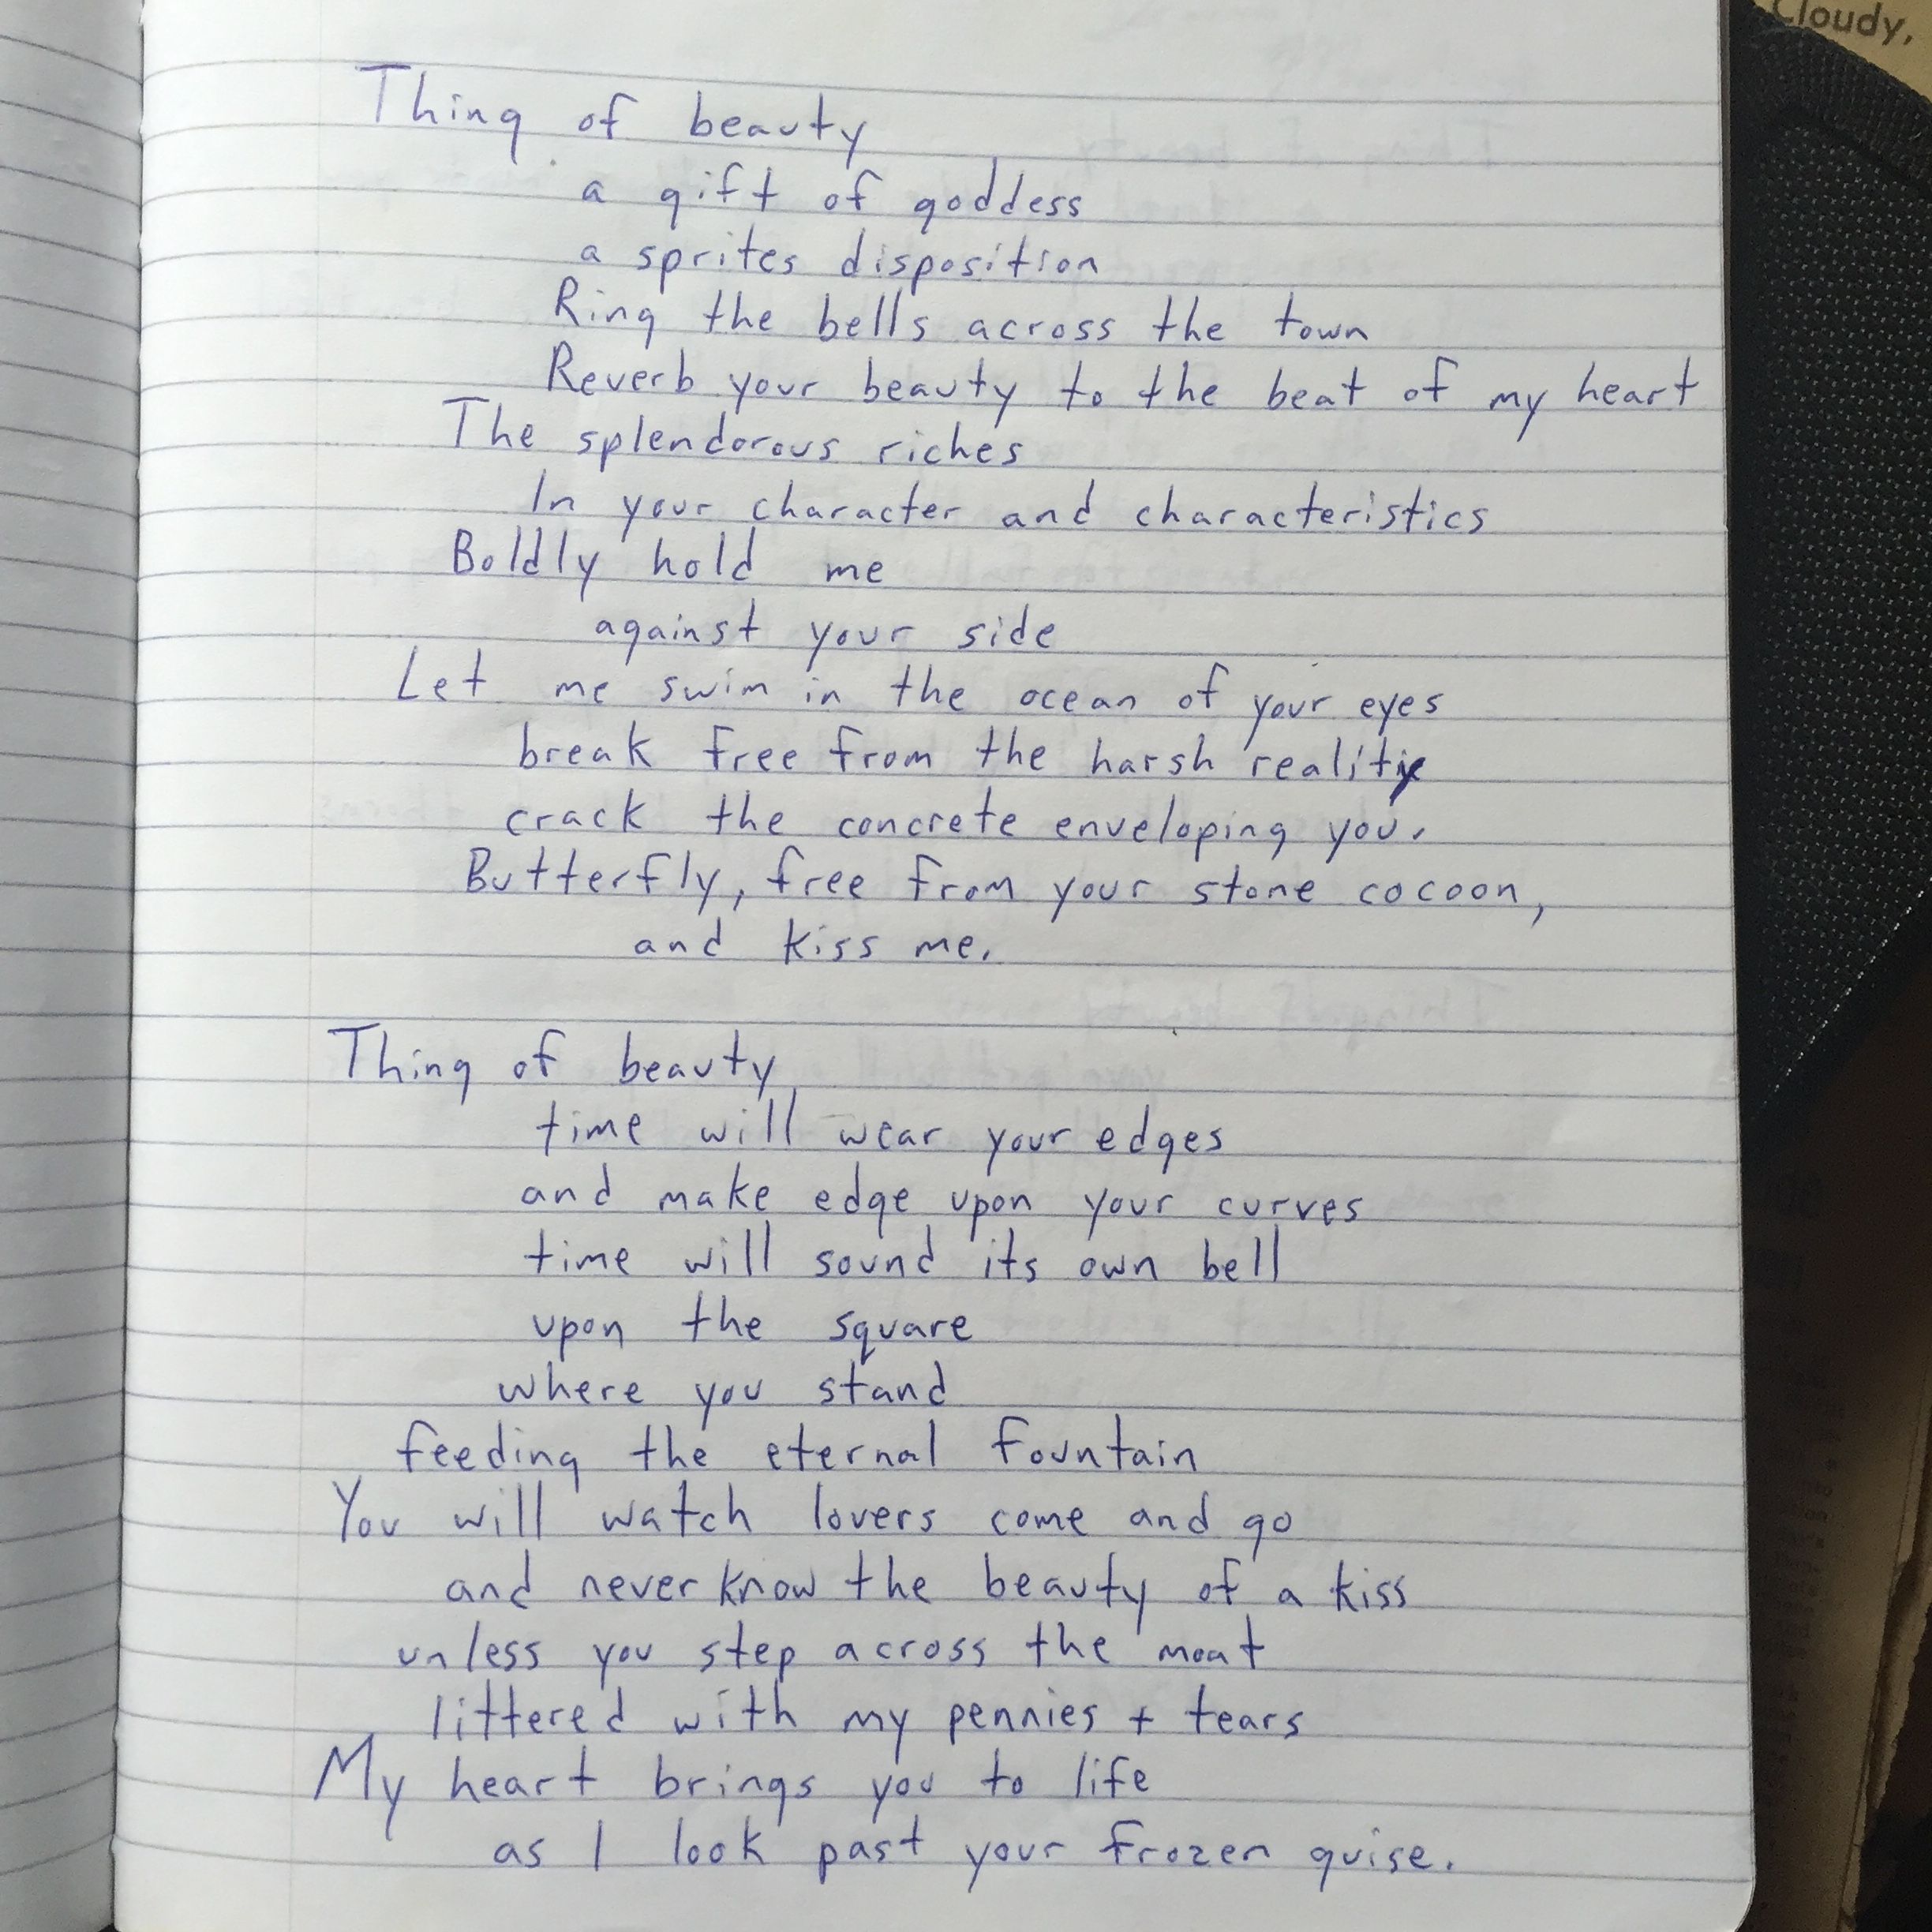 Cloudy,
Thing of beauty
a gift of goddess
a sprites disposition
Ring the bells across the town
Reverb your beauty to the beat of my heart
The splendorous riches
In your character and characteristics
Boldly hold me
against your side
Let me swim in the ocean of your eyes
break free from the harsh reality
crack the concrete enveloping you.
Butterfly, free from your stone cocoon,
and kiss me.
Thing of beauty
time will wear your edges
and make edge upon your curves
time will sound its own bell
upon the square
where you stand
feeding the eternal fountain
You will watch lovers come and go
and never know the beauty of a kiss
unless you step across the moat
littered with my pennies + tears
My heart brings you to life
as I look past your frozen guise.